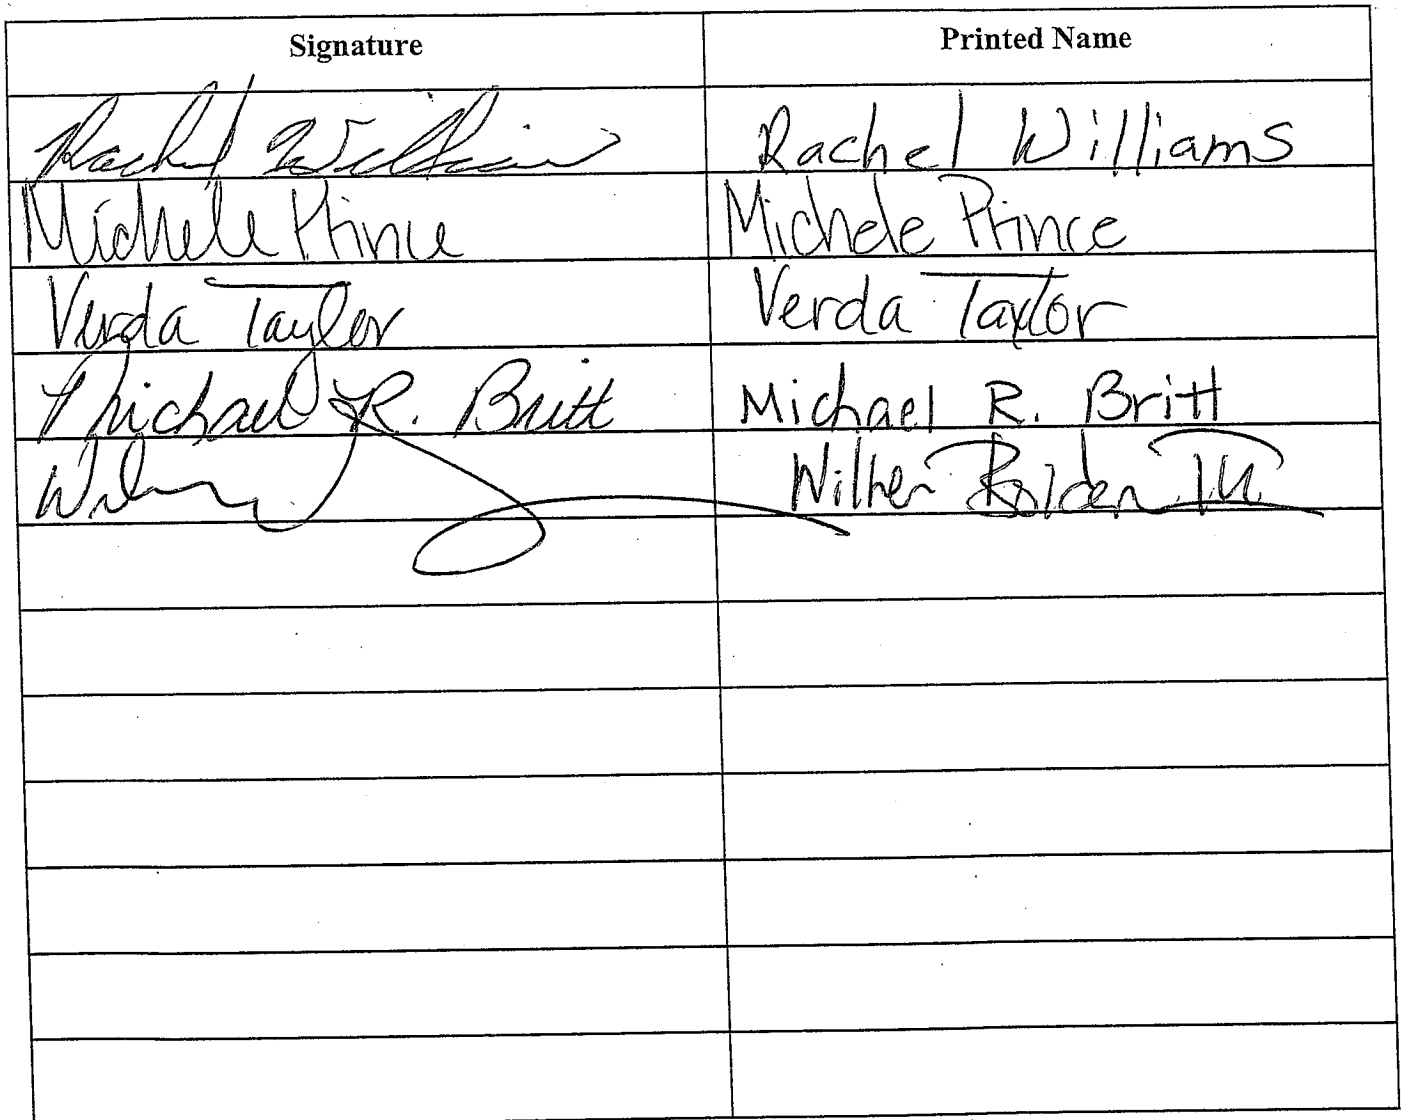 Signature Printed Name
Rachel Williams Rachel Williams
Michele Prince Michele Prince
Verda Taylor Verda Taylor
Michael R. Britt Michael R. Britt